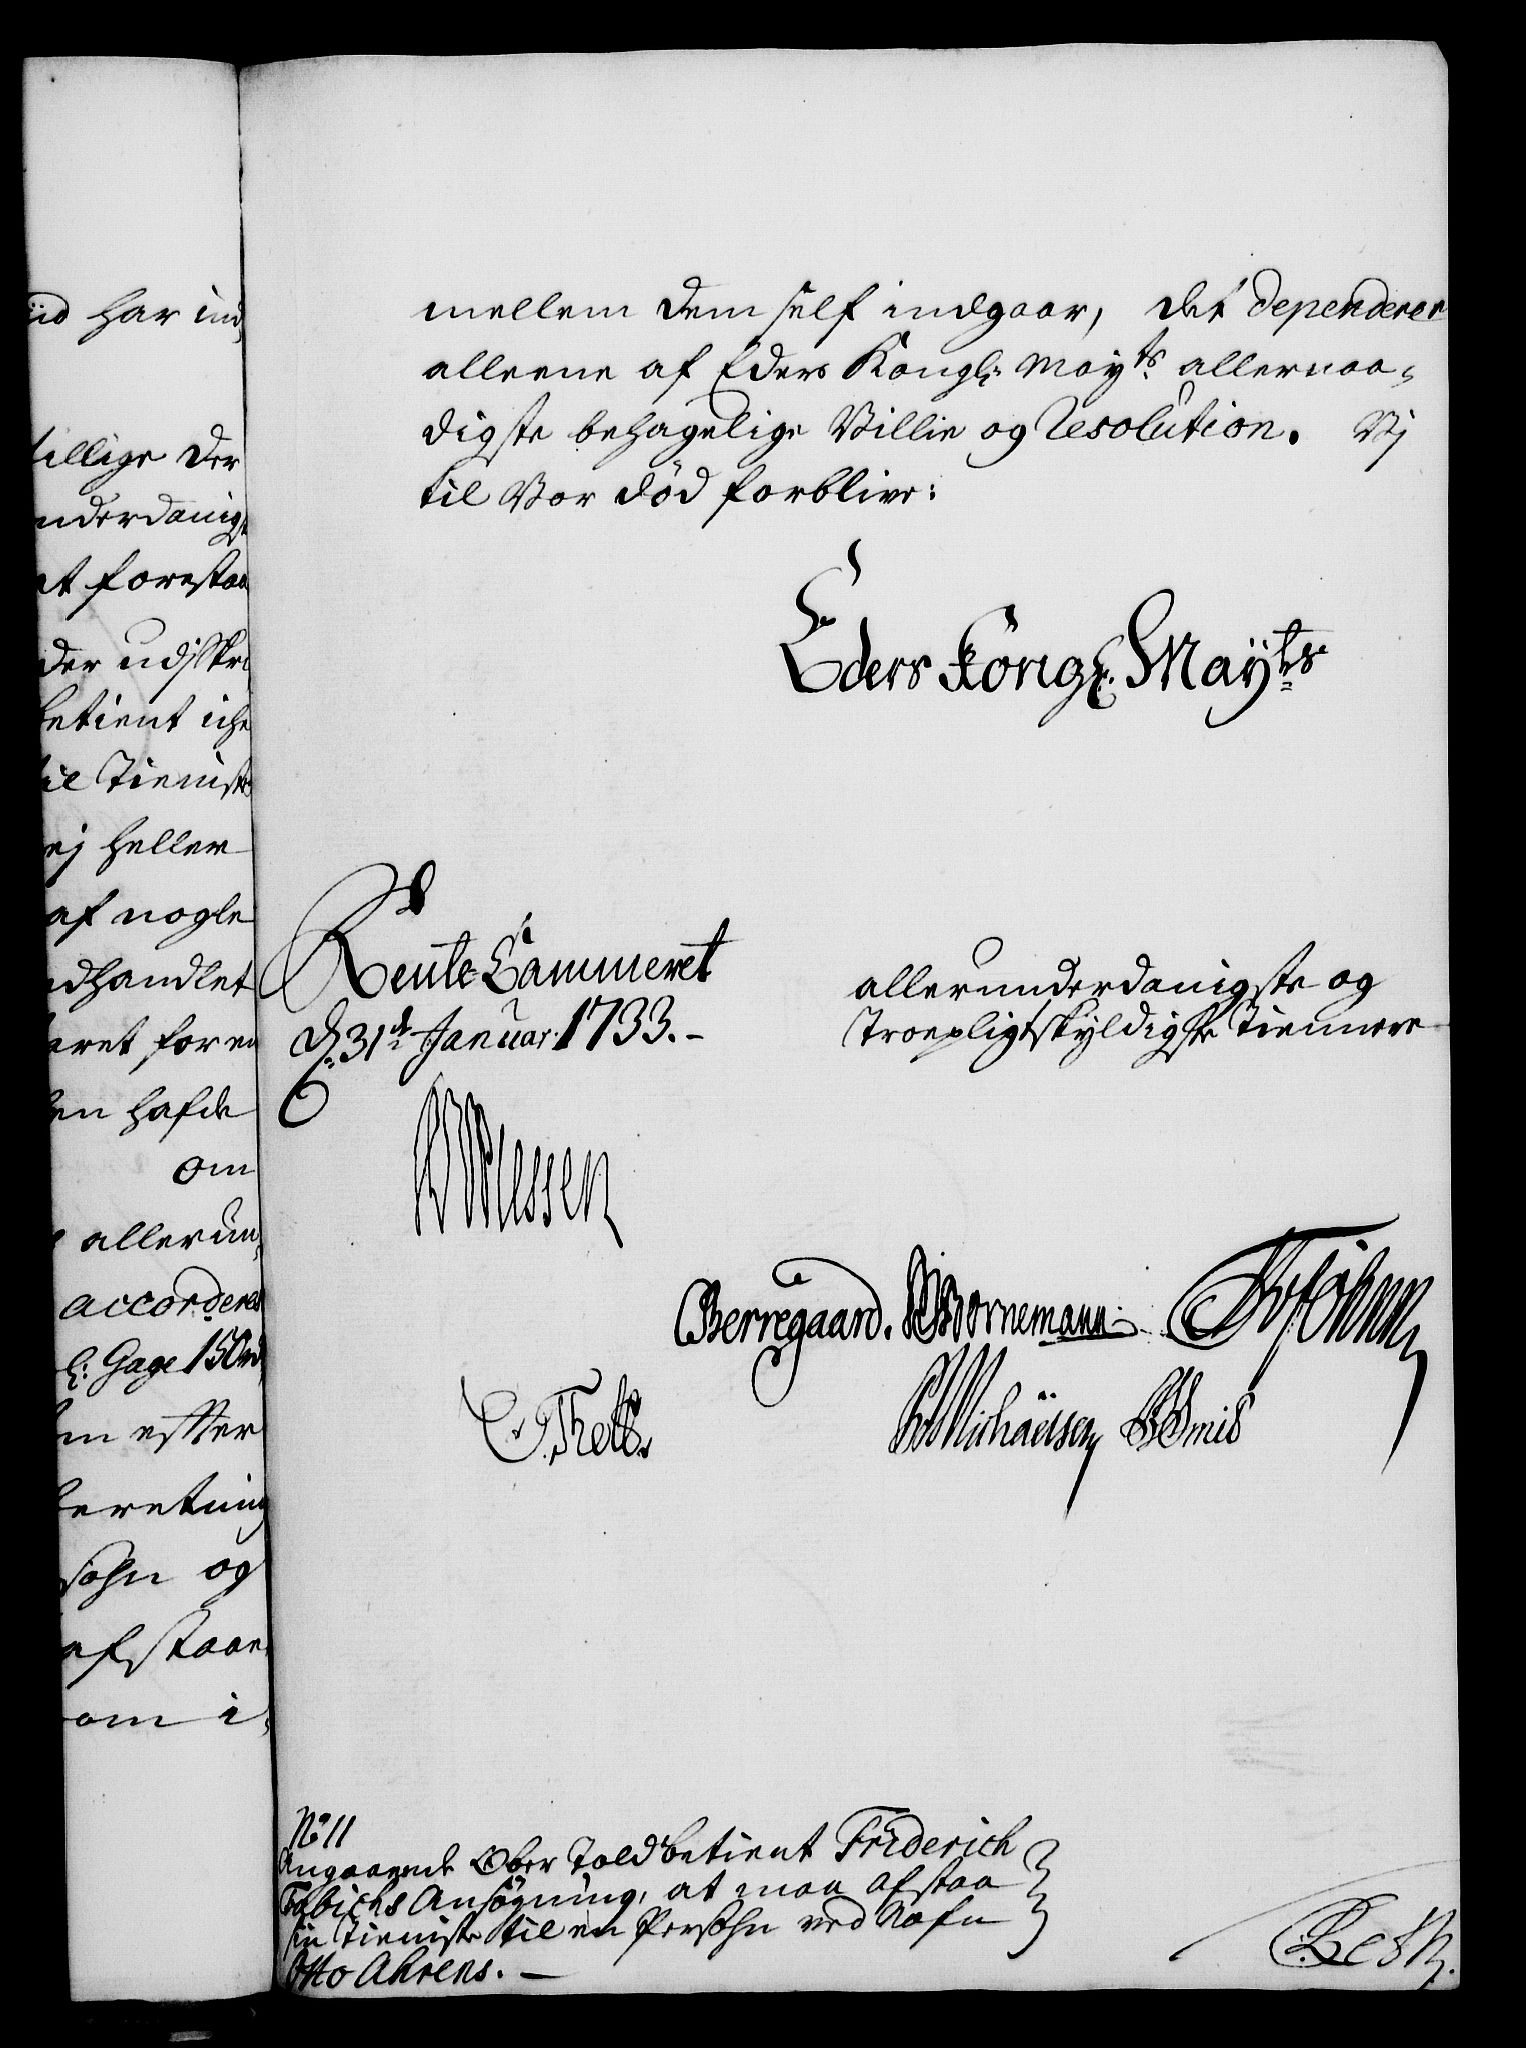 iid har ind,
tillige der
nderdanigst
at forestaa
der udj
betient iche
til Tieniste
ej heller
af nogle
ndhandlet
aret for en
en hafde
om
allerun,
accorderes
l: Gage 150 rd
efter
beretning
sohn og
afstaae,
om i,
mellem dem self indgaar, det dependerer
alleene af Eders Kongl: Mayts. allernaa,
digste behagelige Villie og Resolution. Vj
til Vor død forblive:
Eders Kongl: Mayts
Rente Cammeret
d. 31te Januar: 1733.-
allerunderdanigste og
Troepligtskyldigste Tiennere
Berregaard. Bornemann.
C. Thott.
Michaelsen
No 11
Angaaende Ober Toldbetient Friderich
Fabichs Ansøgning, at maa afstaa
sin Tieniste til en Persohn ved Nafn
Otto Ahrens. -